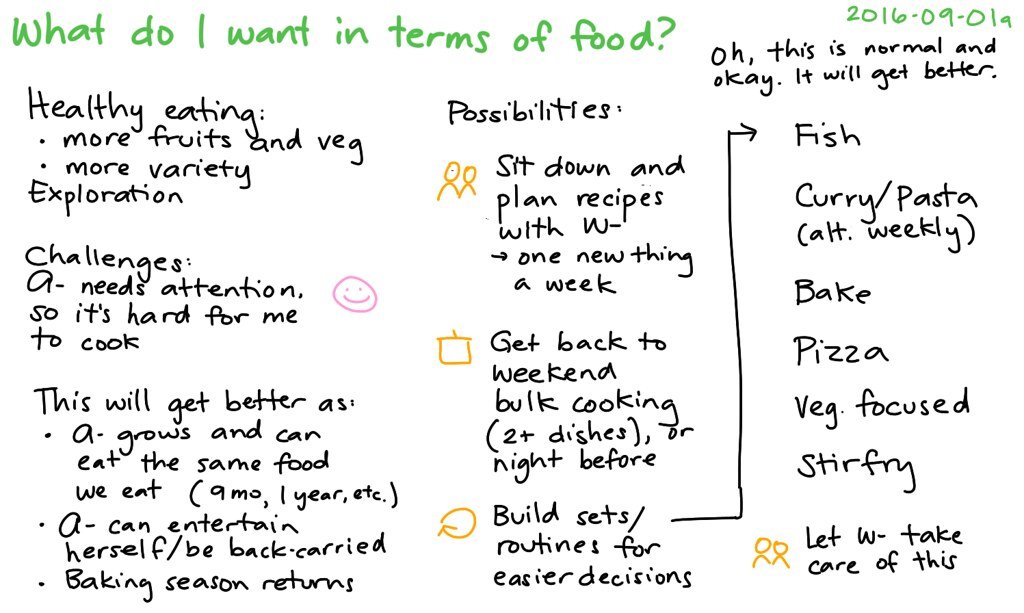 What do I want in terms of food?
2016-09-01a
Oh, this is normal and
okay. It will get better.
Healthy eating:
• more fruits and veg
• more variety
Exploration
Challenges:
A- needs attention,
so it's hard for me
to cook
This will get better as:
• A- grows and can
eat the same food
we eat (9mo, 1 year, etc.)
• A- can entertain
herself/be back-carried
• Baking season returns
Possibilities:
Sit down and
plan recipes
with W-
→ one new thing
a week
Get back to
weekend
bulk cooking
(2+ dishes), or
night before
Build sets/
routines for
easier decisions
Fish
Curry/Pasta
(alt. weekly)
Bake
Pizza
Veg. focused
Stirfry
Let W- take
care of this